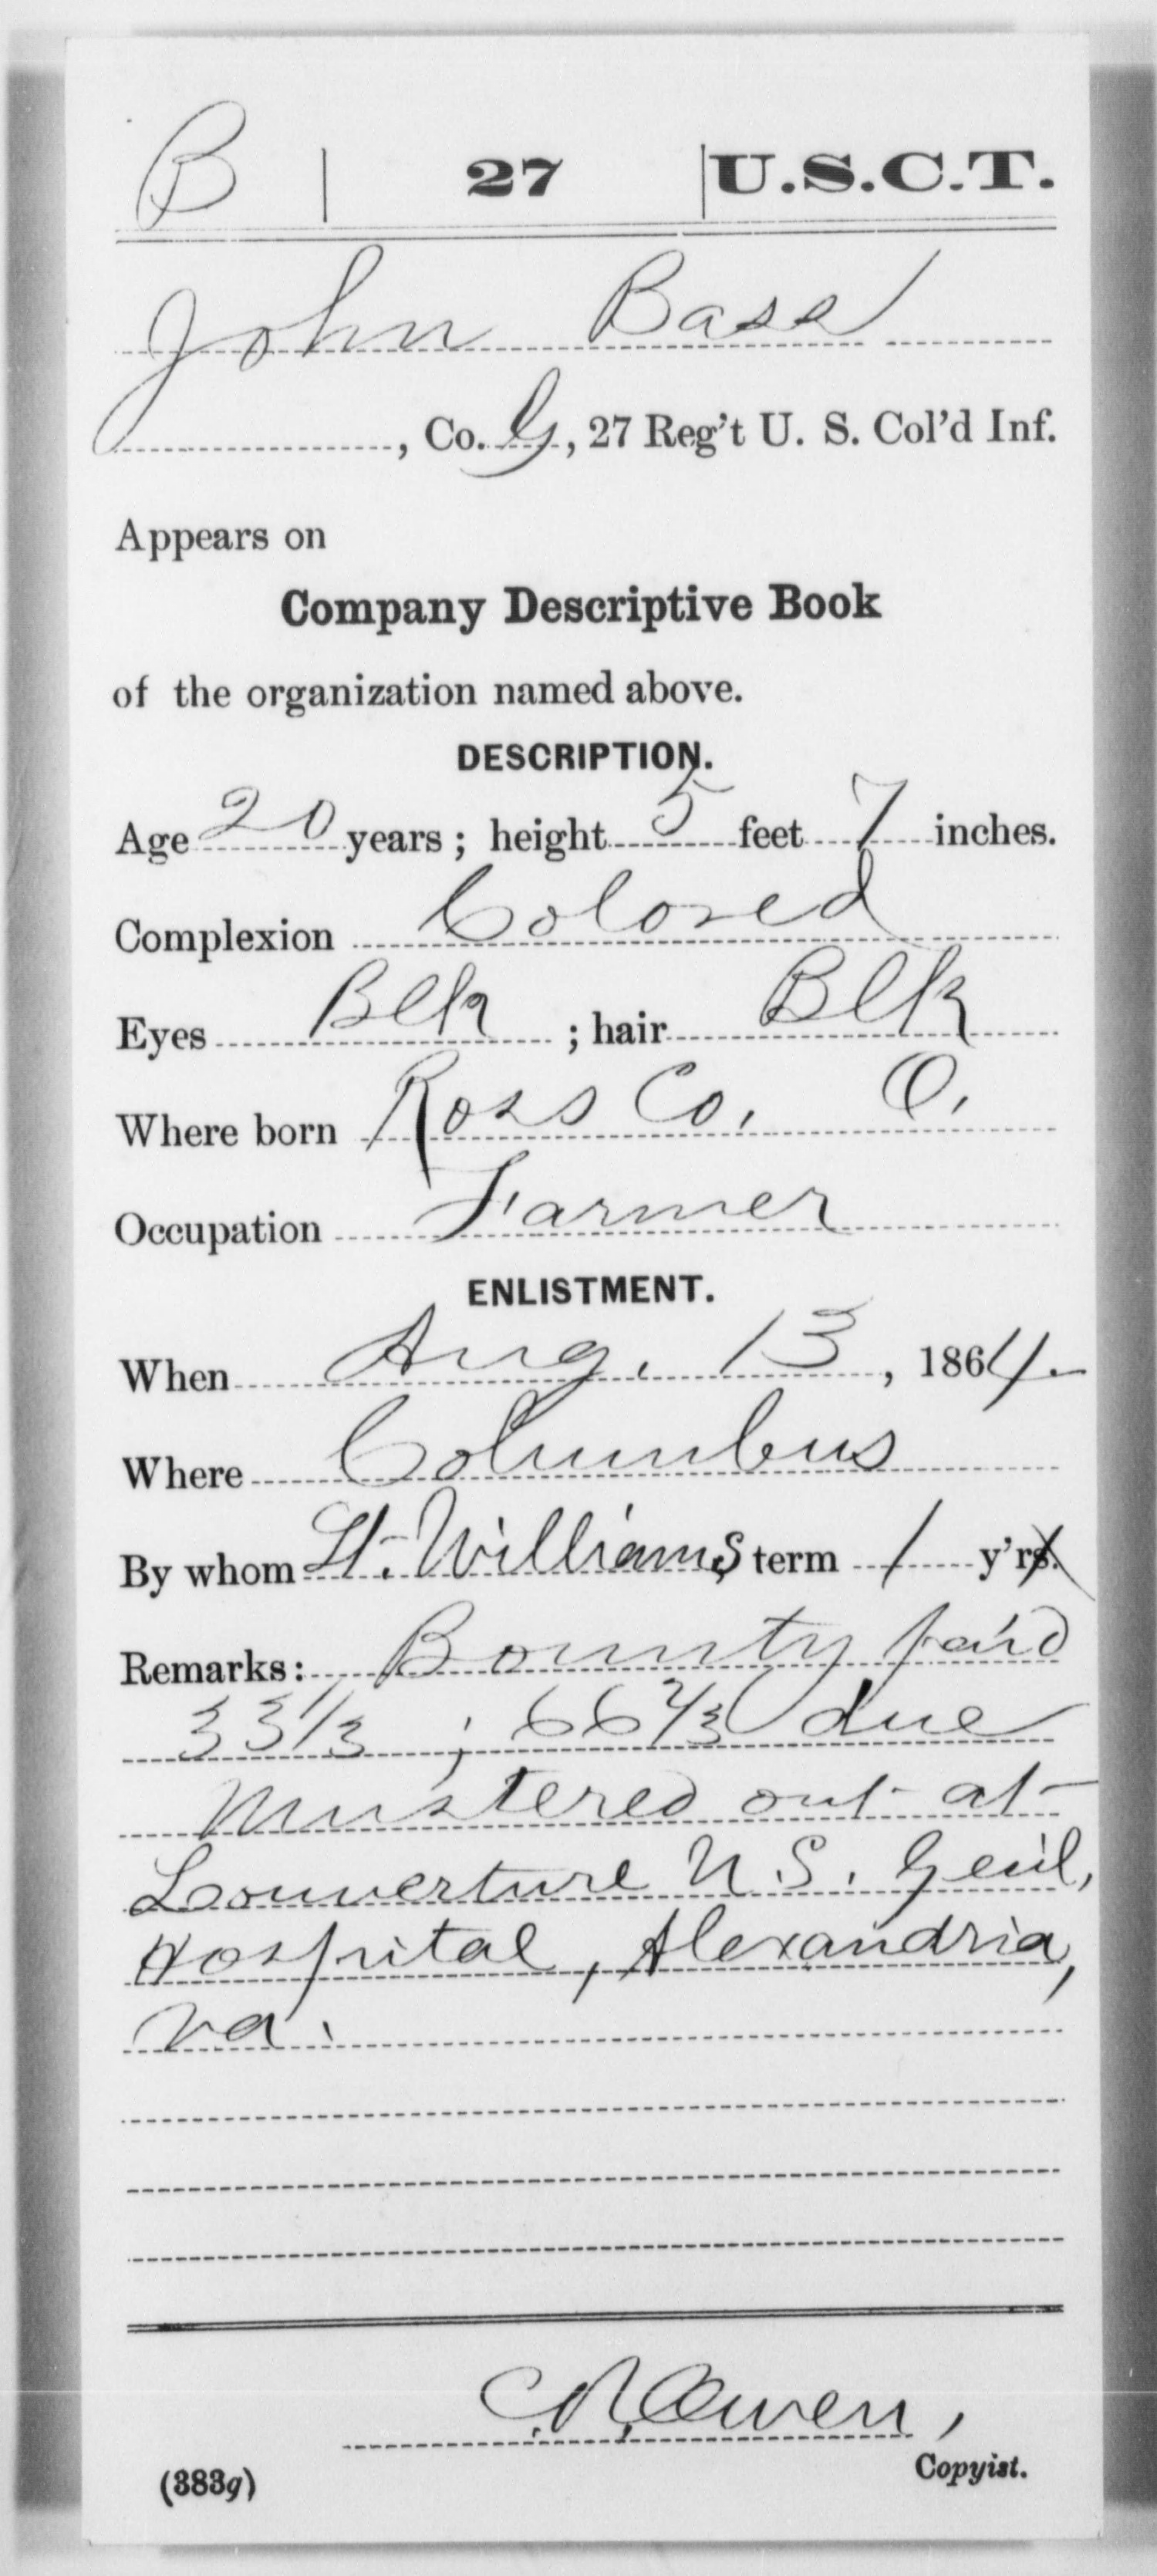 B | 27 | U.S.C.T.
John Bass
, Co. G, 27 Reg't U. S. Col'd Inf.
Appears on
Company Descriptive Book
of the organization named above.
DESCRIPTION.
Age 20 years; height 5 feet 7 inches.
Complexion Colored
Eyes Blk ; hair Blk
Where born Ross Co. O.
Occupation Farmer
ENLISTMENT.
When Aug. 13, 1864.
Where Columbus
By whom Lt. Williams, term 1 y'rs.
Remarks: Bounty paid
33 1/3 ; 66 2/3 due
Mustered out at
Louverture U.S. Genl,
Hospital, Alexandria,
Va.
C.R. Owen,
Copyist.
(383g)